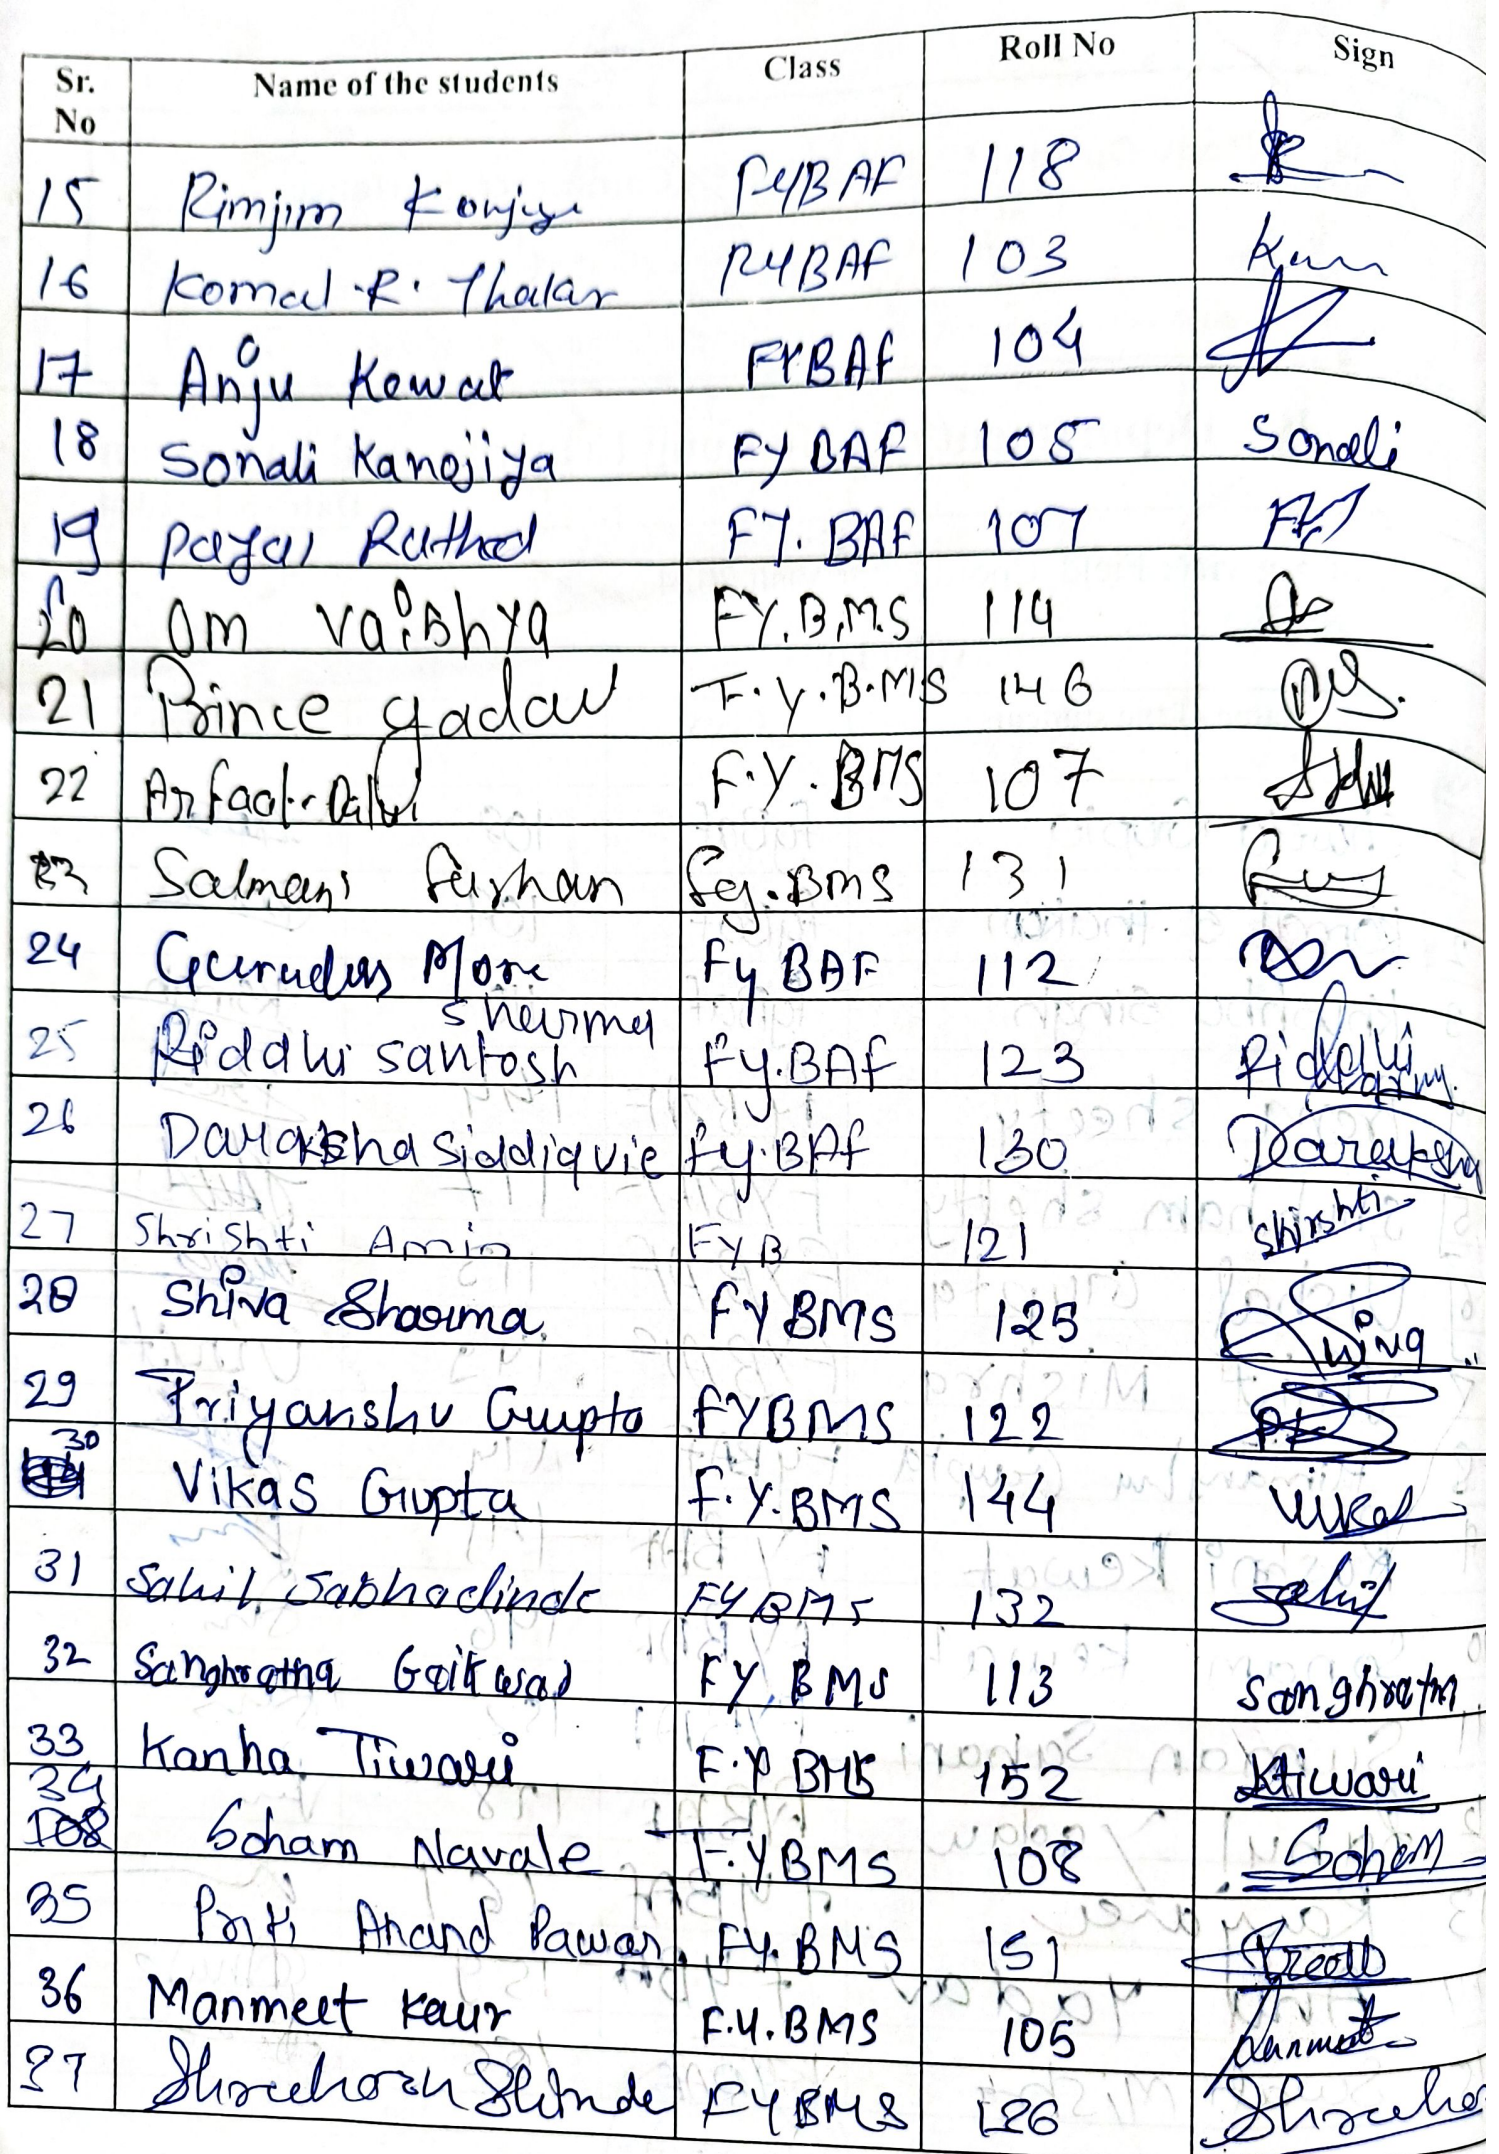 Sr. No Name of the students Class Roll No Sign
15 Rimjim FYBAF 118
16 Komal .R. Thakar FYBAF 103
17 Anju Kewat FYBAF 104
18 Sonali Kanojiya FY BAF 105 Sonali
19 Payal Rathod FY. BAF 107
20 Om Vaibhya FY.B.M.S 114
21 Prince yadav F.Y.B.MS 146
22 Arfaat Dalvi F.Y.BMS 107
23 Salmani farhan fy.BMS 131
24 Gurudas More Fy BAF 112
25 Riddhi santosh sharma Fy.BAF 123 Riddhi
26 Daraksha siddiquie fy.BAf 130 Daraksha
27 Shrishti Amin FYB 121 shirshti
28 Shiva Sharma FYBMS 125
29 Priyanshu Gupta FYBMS 122
30 Vikas Gupta F.Y.BMS 144 Vikas
31 Sahil Sabhadinde FYBMS 132 Sahil
32 Sanghratna Gaikwad FY.BMS 113 Sanghratn
33 Kanha Tiwari F.Y BMS 152 Ktiwari
34 108 Soham Navale F.Y.BMS 108 Soham
35 Priti Anand Pawar. FY.BMS 151
36 Manmeet Kaur F.Y.BMS 105
37 Shinde FYBMS 126